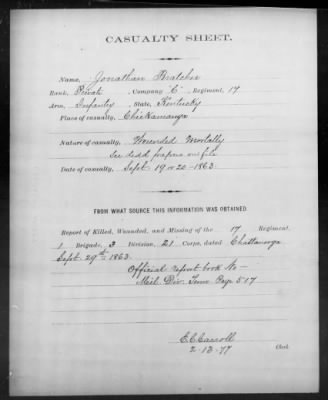 CASUALTY SHEET.
Name, Jonathan Bratcher
Rank, Private, Company "C", Regiment, 17
Arm, Infantry, State, Kentucky
Place of casualty, Chickamauga
Nature of casualty, Wounded Mortally
See dead papers on file
Date of casualty, Sept 19 or 20-1863
FROM WHAT SOURCE THIS INFORMATION WAS OBTAINED
Report of Killed, Wounded, and Missing of the 17 Regiment,
1 Brigade, 3 Division, 21 Corps, dated Chattanooga
Sept. 29th 1863.
Official report book
Mil. Div. Tenn Page 517
E.C. Carroll
2-13-77 Clerk.